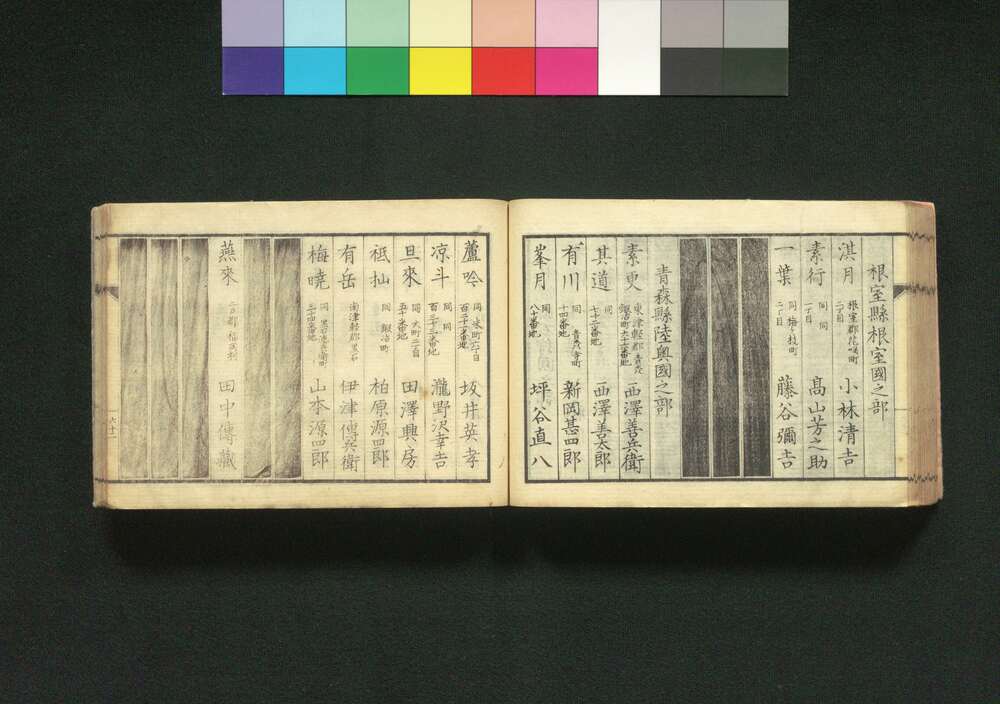 根室縣根室國之部
淇月 根室郡花咲町二丁目 小林清吉
素行 同 同 一丁目 髙山芳之助
一葉 同 梅ヶ枝町二丁目 藤谷彌吉
青森縣陸奥國之部
素更 東津輕郡青森鍛冶町六十六番地 西澤善兵衛
其道 同 同 七十二番地 西澤善太郎
有川 同 青森寺町十四番地 新岡甚四郎
峯月 同 同 八十番地 坪谷直八
蘆吟 同 米町六丁目 坂井英孝
凉斗 同 同 百三十三番地 瀧野沢幸吉
旦來 同 大町二丁目五十番地 田澤興房
祗拙 同 鍛冶町 柏原源四郎
有岳 南津輕郡黒石 伊津傳兵衛
梅曉 三十四番地 山本源四郎
燕來 二戸郡福岡村 田中傳藏
六十